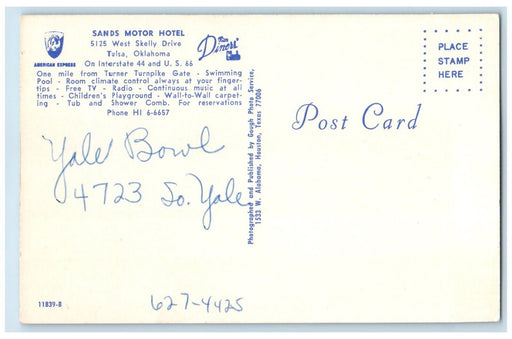 SANDS MOTOR HOTEL
5125 West Skelly Drive
Tulsa, Oklahoma
On Interstate 44 and U. S. 66
AMERICAN EXPRESS
The Diners' Club
One mile from Turner Turnpike Gate - Swimming
Pool - Room climate control always at your finger-
tips - Free TV - Radio - Continuous music at all
times - Children's Playground - Wall-to-Wall carpet-
ing - Tub and Shower Comb. For reservations
Phone HI 6-6657
PLACE
STAMP
HERE
Post Card
Photographed and Published by Gough Photo Service,
1533 W. Alabama, Houston, Texas 77006
Yale Bowl
4723 So. Yale
627-4425
11839-B